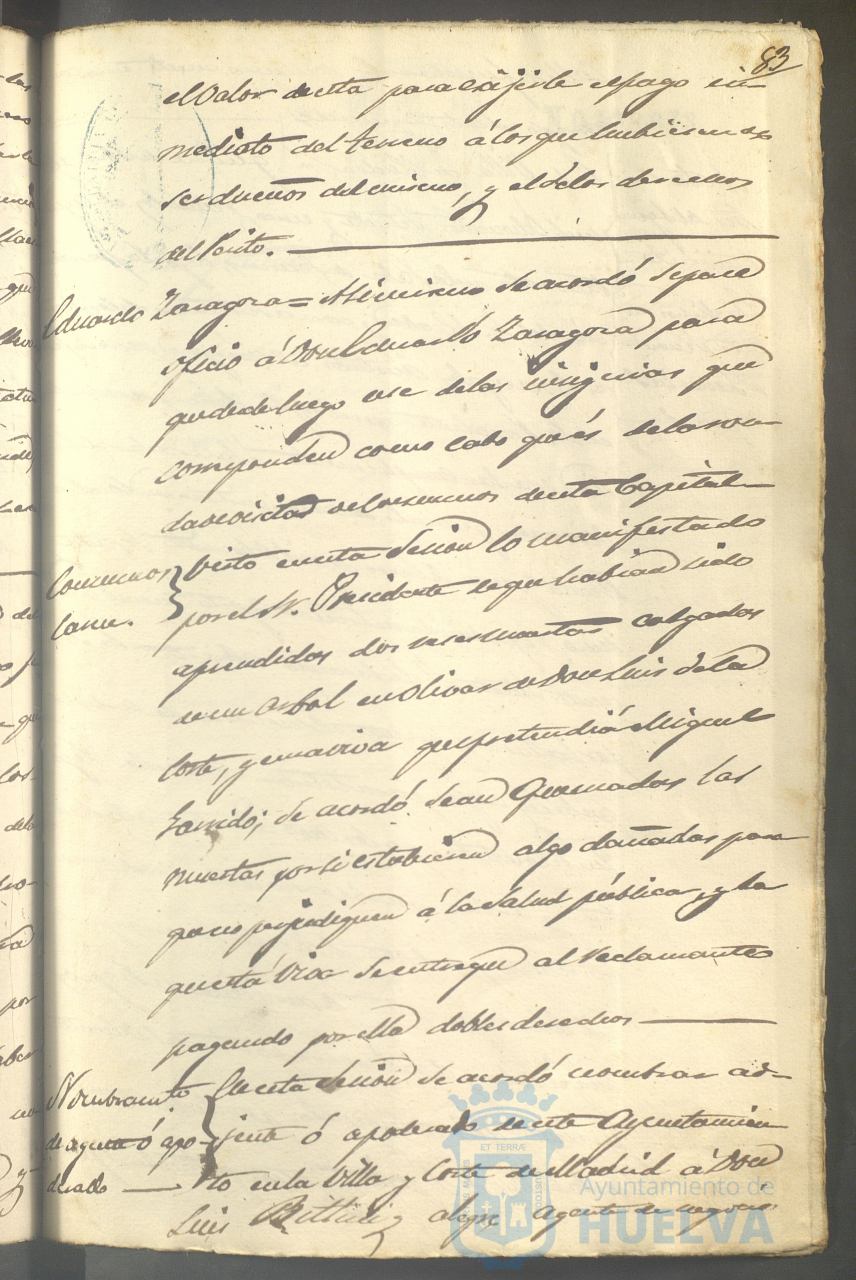 83
el valor de esta para exijirle el pago in-
mediato del terreno á los que hubiesen de
ser dueños del mismo, y el de los derechos
del Posito.
Eduardo Zaragoza = Asimismo se acordó se pase
oficio á Don Eduardo Zaragoza para
que desde luego use de las insignias que
corresponden como cabo que es de la ron-
da de visitas de Consumos de esta Capital
Consumos
Carne.
Visto en esta Sesion lo manifestado
por el Sr. Presidente de que habian sido
aprendidas dos reses muertas colgadas
de un arbol en Olivar de Don Luis de la
Corte, y una viva que pretendia Miguel
Garrido; se acordó sean quemadas las
muertas por si estubiesen algo dañadas para
que no perjudiquen á la Salud pública, y la
que está viva se entregue al reclamante
pagando por ella dobles derechos
Nombramto
de agente ó apo-
derado
En esta Sesion se acordó nombrar ad-
jente ó apoderado de este Ayuntamien-
to en la Villa y Corte de Madrid á Don
Luis agente de negocios
ET TERRÆ
Ayuntamiento de
HUELVA